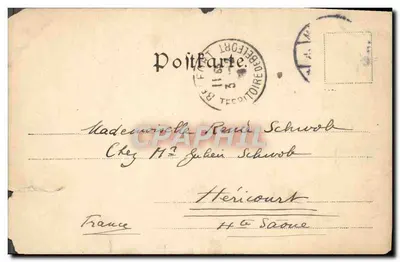 Postkarte.
BELFORT
TERRITOIRE DE BELFORT
CPAPHIL
Mademoiselle René Schwob
Chez Mr Julien Schwob
Héricourt
France
Hte Saône